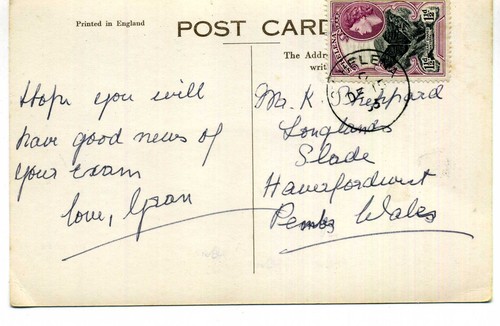 Printed in England
POST CARD
The Addr
writ
Hope you will
have good news of
your exam
love, Gran
Mr. K. Sheppard
Longlands
Slade
Haverfordwest
Pembs Wales
HELENA
1½D